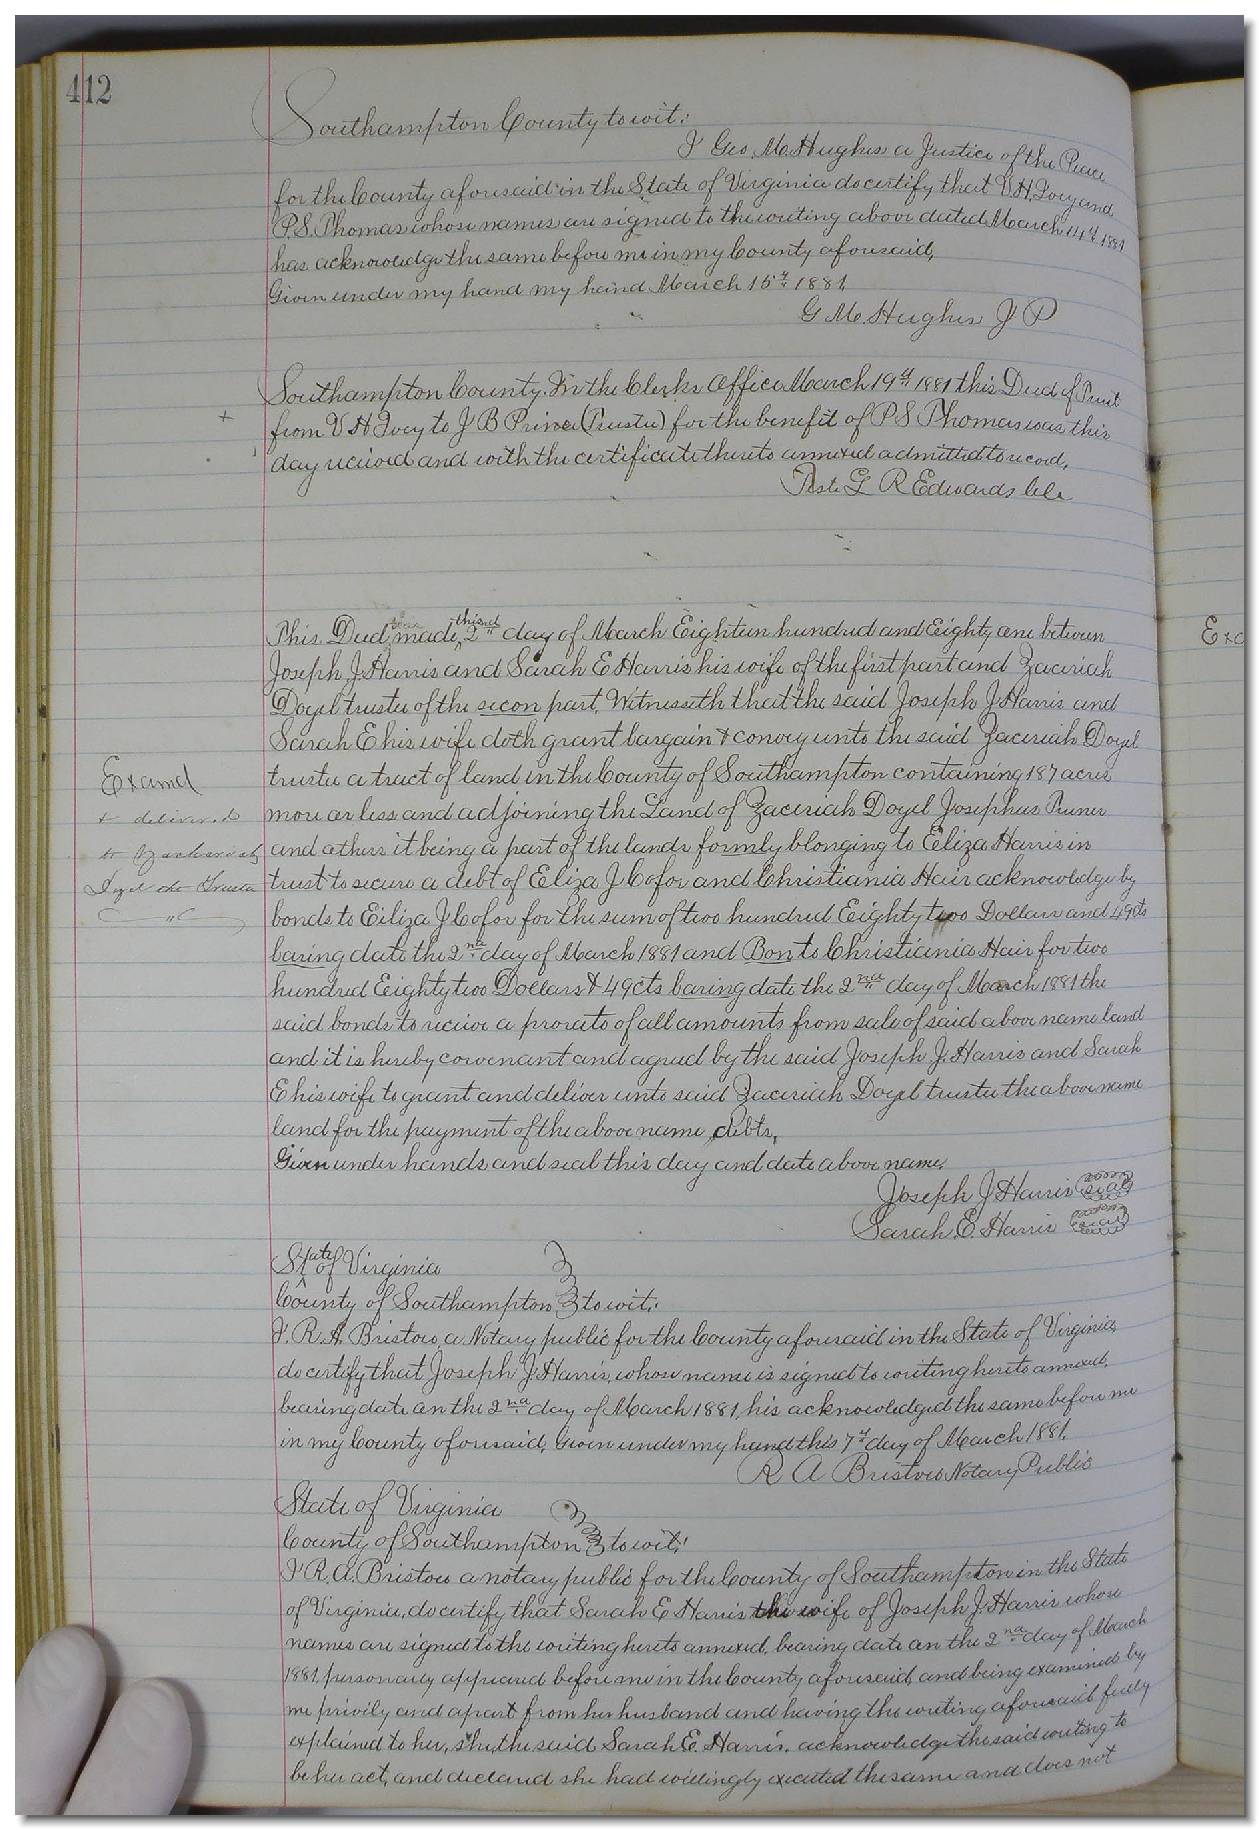 412
Southampton County to wit:
I Geo. M. Hughes a Justice of the Peace
for the County aforesaid in the State of Virginia do certify that V. H. Ivey and
P.S. Thomas whose names are signed to the writing above dated March 14th 1881
has acknowledge the same before me in my County aforesaid,
Given under my hand my hand March 15th 1881
G M. Hughes J P
Southampton County. In the Clerks Office March 19th 1881 this Deed of Trust
+
from V H Ivey to J B Prince (Trustee) for the benefit of P S Thomas was this
day received and with the certificate thereto annexed admitted to record,
Teste L R Edwards Clk
This Deed made this 2nd day of March Eighteen hundred and Eighty one between
Exa
Joseph J Harris and Sarah E Harris his wife of the first part and Zaceriah
Doyel trustee of the secon part, Witnesseth that the said Joseph J Harris and
Sarah E his wife doth grant bargain & convey unto the said Zaceriah Doyel
trustee a tract of land in the County of Southampton containing 187 acres
Examd
more or less and adjoining the Land of Zaceriah Doyel Josephus
& delivered
and others it being a part of the lands formly blonging to Eliza Harris in
to Zachariah
trust to secure a debt of Eliza J Cofor and Christiania Hair acknowledge by
Doyel the Trustee
bonds to Eiliza J Cofor for the sum of two hundred Eighty two Dollars and 49cts
baring date the 2nd day of March 1881 and Bon to Christiania Hair for two
hundred Eighty two Dollars & 49cts baring date the 2nd day of March 1881 the
said bonds to receive a proreto of all amounts from sale of said above name land
and it is hereby covenant and agreed by the said Joseph J. Harris and Sarah
E his wife to grant and deliver unto said Zaceriah Doyel trustee the above name
land for the payment of the above name debts,
Given under hands and seal this day and date above name.
Joseph J Harris seal
Sarah E. Harris seal
State of Virginia
County of Southampton to wit:
I. R. A. Bristow a Notary public for the County aforesaid in the State of Virginia
do certify that Joseph J. Harris, whose name is signed to writing hereto annexed,
bearing date on the 2nd day of March 1881, his acknowledged the same before me
in my County aforesaid, Given under my hand this 7th day of March 1881.
R A Bristow Notary Public
State of Virginia
County of Southampton to wit:
I R. A. Bristow a notary public for the County of Southampton in the State
of Virginia, do certify that Sarah E Harris the wife of Joseph J. Harris whose
names are signed to the writing hereto annexed, bearing date on the 2nd day of March
1881, personaly appeared before me in the County aforesaid, and being examined by
me privily and apart from her husband and having the writing aforesaid fully
explained to her, she, the said Sarah E. Harris, acknowledge the said writing to
be her act, and declared she had willingly executed the same and does not